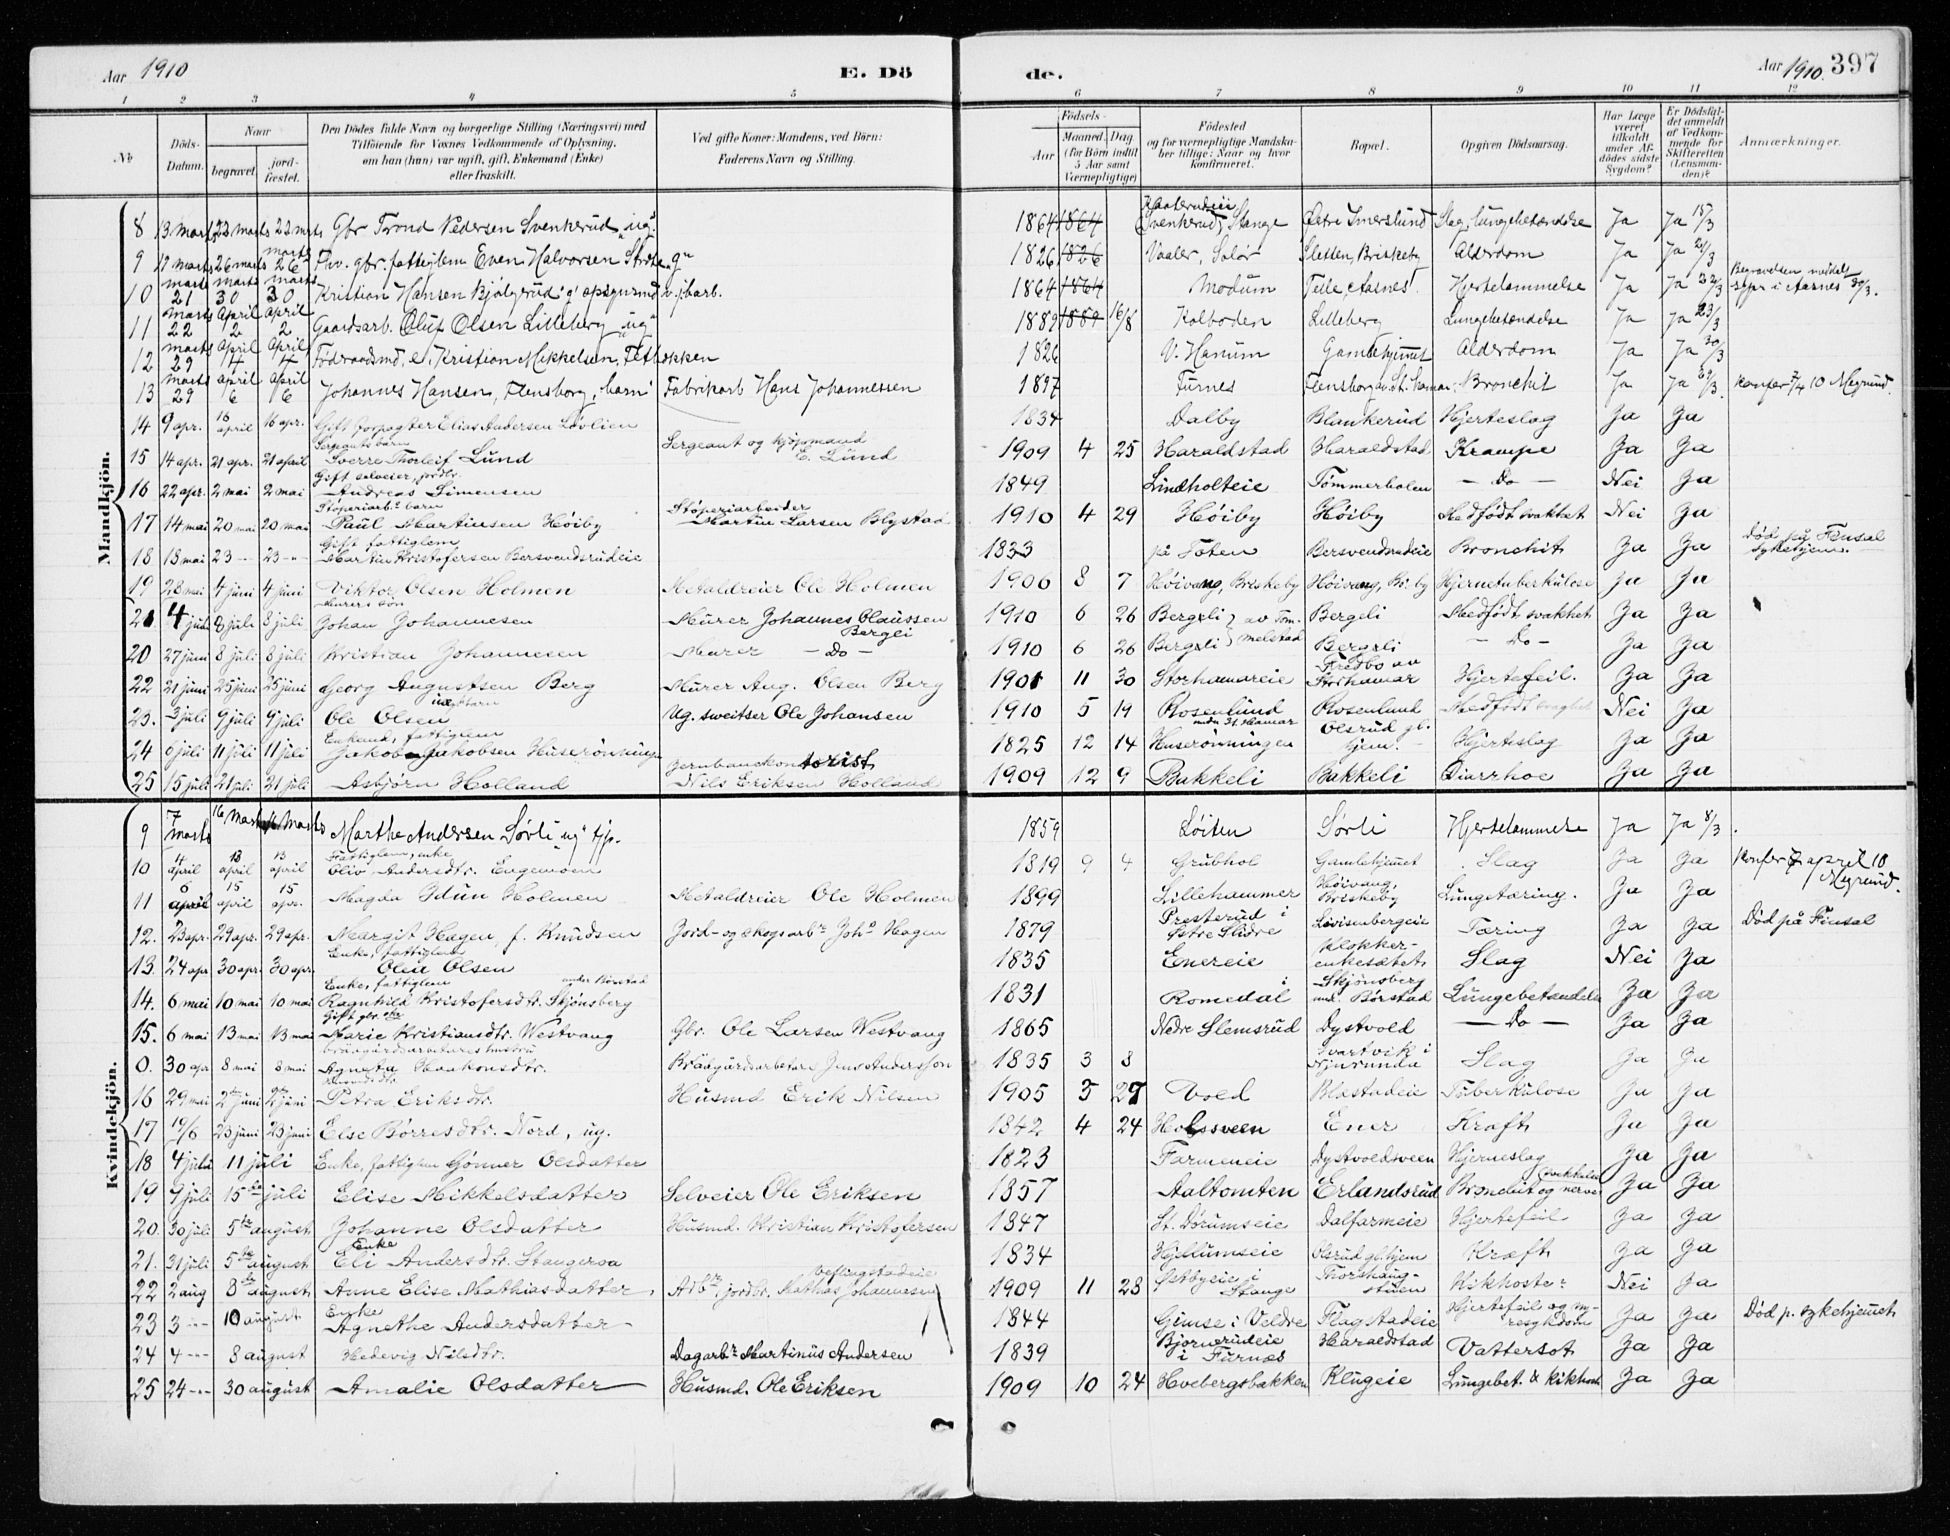 Aar 1910 E. Dö de. Aar 1910. 397
1 2 3 4 5 6 7 8 9 10 11 12
No
Döds-Datum.
Naar
begravet.
jord-fæstet.
Den Dödes fulde Navn og borgerlige Stilling (Næringsvei) med Tilföiende for Voxnes Vedkommende af Oplysning, om han (hun) var ugift, gift, Enkemand (Enke) eller fraskilt.
Ved gifte Koner: Mandens, ved Börn: Faderens Navn og Stilling.
Födsels-
Aar
Maaned. Dag
(for Börn indtil 5 Aar samt Værnepligtige)
Födested og for værnepligtige Mandskaber tillige: Naar og hvor konfirmeret.
Bopæl.
Opgiven Dödsaarsag.
Har Læge været tilkaldt under Afdödes sidste Sygdom?
Er Dödsfaldet anmeldt af Vedkommende for Skifteretten (Lensmanden)?
Anmærkninger.
Mandkjön.
8 13 marts 22 marts 22 marts Gbr Trond Pedersen Svenkerud „ug“ 1864 1864 Svenkerud, Stange Østre Imerslund Slag, lungebetændelse Ja Ja 15/3
9 19 marts 26 marts 26 marts Fhv. gbr. fattiglem Even Halvorsen „g“ 1826 1826 Vaaler, Solør Sletten, Briskeby Alderdom Ja Ja 21/3
10 21 marts 30 marts 30 marts Kristian Hansen Bjølgerud „g“ 1864 1864 Modum Aasnes Hjertelammelse Ja Ja 22/3 Begravelsen meddelt sgpr i Aasnes 30/3.
11 22 marts 2 april 2 april Gaardsarb. Oluf Olsen Lilleberg „ug“ 1889 1889 16/8 Kolboden Lilleberg Lungebetændelse Ja Ja 23/3
12 29 marts 4 april 4 april Føderaadsmd, e. Kristian Mikkelsen, 1826 V. Hanum Gamlehjemmet Alderdom Ja Ja 30/3
13 29 marts 6 april 6 april Johannes Hansen, Flensborg, „barn“ Fabrikarb Hans Johannessen 1897 Furnes Flensborg Bronchit Ja Ja 29/3. Konfer 7/4 10 Megrund.
14 9 apr. 16 april 16 apr. Gift forpagter Elias Andersen Løvlien 1834 Dalby Blankerud Hjerteslag Ja Ja
15 14 apr. 21 apr. 21 april Sergeants barn Sverre Thorleif Lund Sergeant og kjøpmand E. Lund 1909 4 25 Haraldstad Haraldstad Krampe Ja Ja
16 22 apr. 2 mai 2 mai Gift selveier, jordbr. Andreas Simensen 1849 Lindholteie Tømmerholen — Do — Nei Ja
17 14 mai 20 mai 20 mai Støperiarb.s barn Paul Martinsen Høiby Støperiarbeider Martin Larsen Blystad 1910 4 29 Høiby Høiby Medfødt svakhet Nei Ja
18 18 mai 23 — 23 — Gift fattiglem Martin Kristofersen Bersvendsrudeie 1833 på Toten Bersvendrudeie Bronchit Ja Ja Død på Finsal sykehjem.
19 28 mai 4 juni 4 juni Viktor Olsen Holmen Metaldreier Ole Holmen 1906 8 7 Høivang, Briskeby Høivang, Br. by Hjernetuberkulose Ja Ja
21 4 juli 8 juli 8 juli Murers søn Johan Johannesen Murer Johannes Olaussen Bergli 1910 6 26 Bergeli av Tommelstad Bergeli Medfødt svakhet Ja Ja
20 27 juni 8 juli 8 juli Kristian Johannesen Murer — Do — 1910 6 26 Bergeli Bergeli — Do — Ja Ja
22 21 juni 25 juni 25 juni Georg Augustsen Berg Murer Aug. Olsen Berg 1901 11 30 Storhamareie Fredbo av Storhamar Hjertefeil. Ja Ja
23. 3 juli 9 juli 9 juli Ole Olsen Ug. sweitser Ole Johansen 1910 5 19 Rosenlund under St. Hamar Rosenlund Medfødt svaghet Nei Ja
24 6 juli 11 juli 11 juli Enkemd, fattiglem Jakob Jakobsen Huserønningen 1825 12 14 Huserønningen Olsrud gl. hjem. Hjerteslag Ja Ja
25 15 juli 21 juli 21 juli Asbjørn Holland Jernbanekontorist Nils Eriksen Holland 1909 12 9 Bakkeli Bakkeli Diarrhoe Ja Ja
Kvindekjön.
9 7 marts 16 marts 16 marts Marthe Andersen Sørli „ug“ tjp. 1859 Løiten Sørli Hjertelammelse Ja Ja 8/3.
10 4 april 13 april 13 april Fattiglem, enke Oliv Andersdtr. Engemoen 1819 9 4 Grubhol Gamlehjemet Slag Ja Ja Konfer 7 april 10 Megrund.
11 6 april 15 april 15 apr. Magda Idun Holmen Metaldreier Ole Holmen 1899 Lillehammer Høivang, Briskeby Lungetæring. Ja Ja
12. 23 apr. 29 apr. 29 apr. Margit Hagen, f. Knudsen Jord- og skogsarbr Johs Hagen 1879 Presterud i Østre Slidre Lovisenbergeie Tæring Ja Ja Død på Finsal
13. 24 apr 30 apr. 30 apr. Enke, fattiglem Olea Olsen 1835 Enereie Klokkerenkesætet Slag Nei Ja
14. 6 mai 10 mai 10 mai Enke, fattiglem Ragnhild Kristofersdtr. Skjønsberg under Børstad 1831 i Romedal Skjønsberg und. Børstad Lungebetændelse Ja Ja
15. 6 mai 13 mai 13 mai Gift gbr. Marie Kristiansdtr. Westvang Gbr. Ole Larsen Westvang 1865 Nedre Slemsrud Dystvold — Do — Ja Ja
0. 30 apr 8 mai 8 mai Brädgårdsarbetares hustru Agneta Haakonsdtr. Brädgårdsarbetare Jens Andersson 1835 3 8 Svartvik i Njurunda Slag Ja Ja
16 29 mai 2 juni 2 juni Petra Eriksdtr. Husmd Erik Nilsen 1905 3 27 Vold Blæstadeie Tuberkulose Ja Ja
17 19/6 23 juni 23 juni Else Børresdtr. Nord, ug. 1842 4 24 Holssveen Ener Kræft Ja Ja
18 4 juli 11 juli Enke, fattiglem Gønner Olsdatter 1823 Farmeneie Dystvoldsveen Hjerneslag Ja Ja
19 9 juli 15de juli Elise Mikkelsdatter Selveier Ole Eriksen 1857 Aaltomten Erlandsrud Bronchit og nerve svækkelse Ja Ja
20. 30 juli 5te august Johanne Olsdatter Husmd. Kristian Kristofersen 1847 St. Dørumseie Dalfarmeie Hjertefeil Ja Ja
21. 31 juli 5te august Enke Eli Andersdtr. Stangeroa 1834 Hjellumseie Olsrud gl. hjem Kræft Ja Ja
22 2 aug 8de august Anne Elise Mathiasdatter, Arbr, jordbr. Mathias Johannesen 1909 11 28 Østbyeie i Stange Thorshaugstuen Kikhoste Nei Ja
23 3 — 10 august Enke Agnethe Andersdatter 1844 Gimse i Veldre Flagstadeie Hjertefeil og nyresykdom Ja Ja Død p. sykehjemmet
24 4 — 8 august Hedevig Nilsdtr. Dagarbr Martinus Andersen 1839 Bjørnerudeie i Furnes Haraldstad Vattersot Ja Ja
25 24 — 30 august Amalie Olsdatter Husmd. Ole Eriksen 1909 10 24 Hvebergsbakken Klugeie Lungebet. & kikhoste Ja Ja